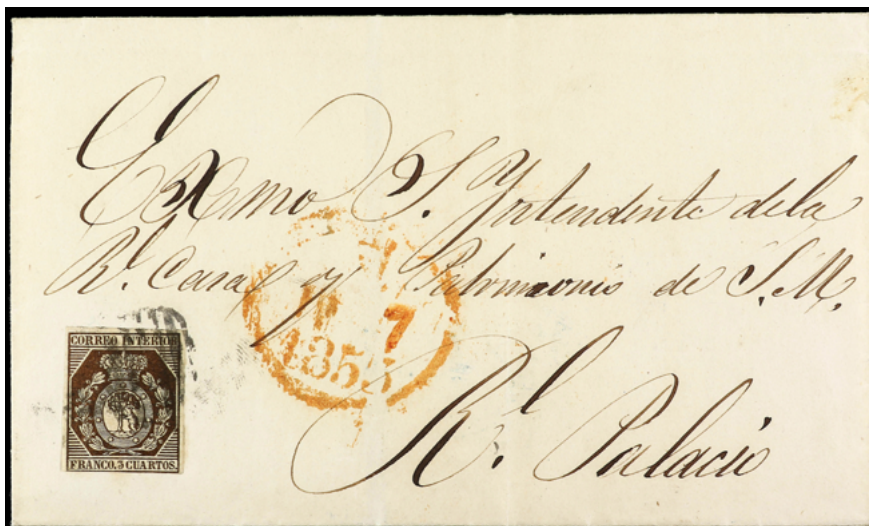 Exmo S. Yntendente de la
Rl. Casa y Patrimonio de S.M.
Rl. Palacio
7
185
CORREO INTERIOR
FRANCO. 3 CUARTOS.